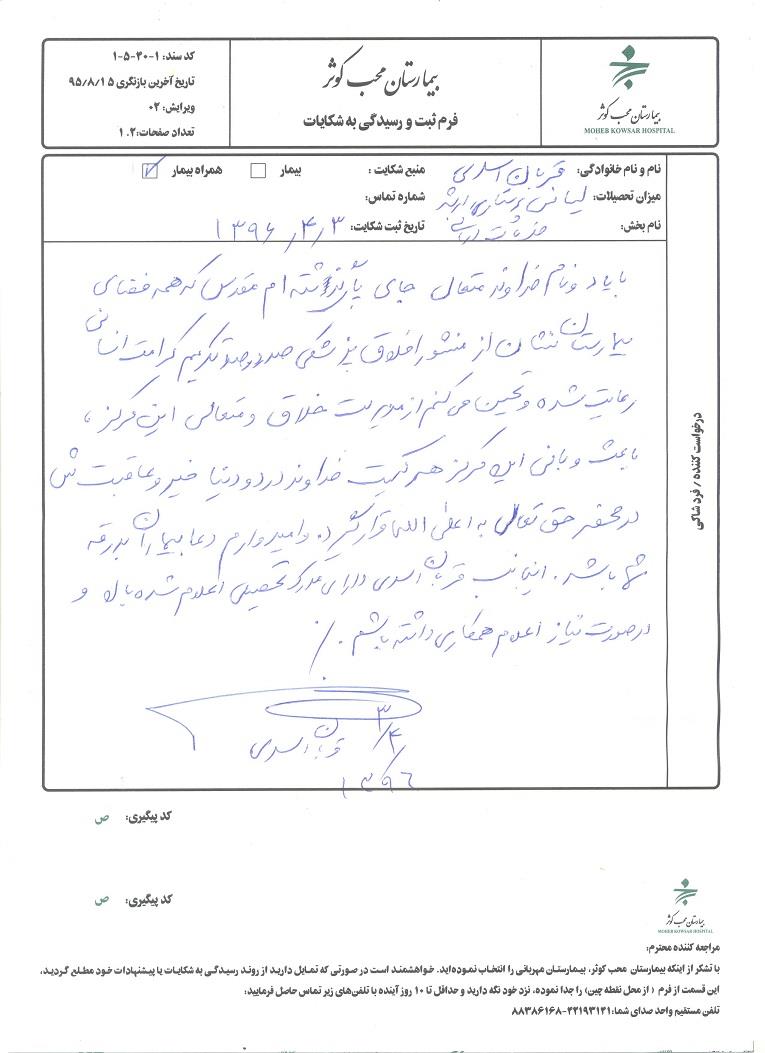 کد سند: ۱-۳۰-۵-۱
تاریخ آخرین بازنگری ۹۵/۸/۱۵
ویرایش: ۰۲
تعداد صفحات: ۲. ۱
بیمارستان محب کوثر
فرم ثبت و رسیدگی به شکایات
بیمارستان محب کوثر
MOHEB KOWSAR HOSPITAL
نام و نام خانوادگی: قربان اسدی منبع شکایت : بیمار همراه بیمار ✓
میزان تحصیلات: لیسانس پرستاری ارشد شماره تماس:
نام بخش: تاریخ ثبت شکایت: ۱۳۹۶/۴/۳
درخواست کننده / فرد شاکی
با یاد و نام خداوند متعال جای پای گذاشته ام مقدس که همه فضای
بیمارستان نشان از منشور اخلاق پزشکی صددرصد تکریم کرامت انسانی
رعایت شده و تحسین می کنم از مدیریت خلاق و متعالی این مرکز ،
باعث و بانی این مرکز هر کیست خداوند در دو دنیا خیر و عاقبتش
در محضر حق تعالی به اعلی قرار گیرد. و امیدوارم دعا بیماران بدرقه
شما باشد. اینجانب قربان اسدی دارای مدرک تحصیلی اعلام شده بالا و
در صورت نیاز اعلام همکاری داشته باشم ./
۳/۴/۱۳۹۶
قربان اسدی
کد پیگیری: ص
کد پیگیری: ص
بیمارستان محب کوثر
MOHEB KOWSAR HOSPITAL
مراجعه کننده محترم:
با تشکر از اینکه بیمارستان محب کوثر، بیمارستان مهربانی را انتخاب نموده‌اید. خواهشمند است در صورتی که تمایل دارید از روند رسیدگی به شکایات یا پیشنهادات خود مطلع گردید،
این قسمت از فرم ( از محل نقطه چین) را جدا نموده، نزد خود نگه دارید و حداقل تا ۱۰ روز آینده با تلفن‌های زیر تماس حاصل فرمایید:
تلفن مستقیم واحد صدای شما: ۲۲۱۹۳۱۲۱-۸۸۳۸۶۱۶۸